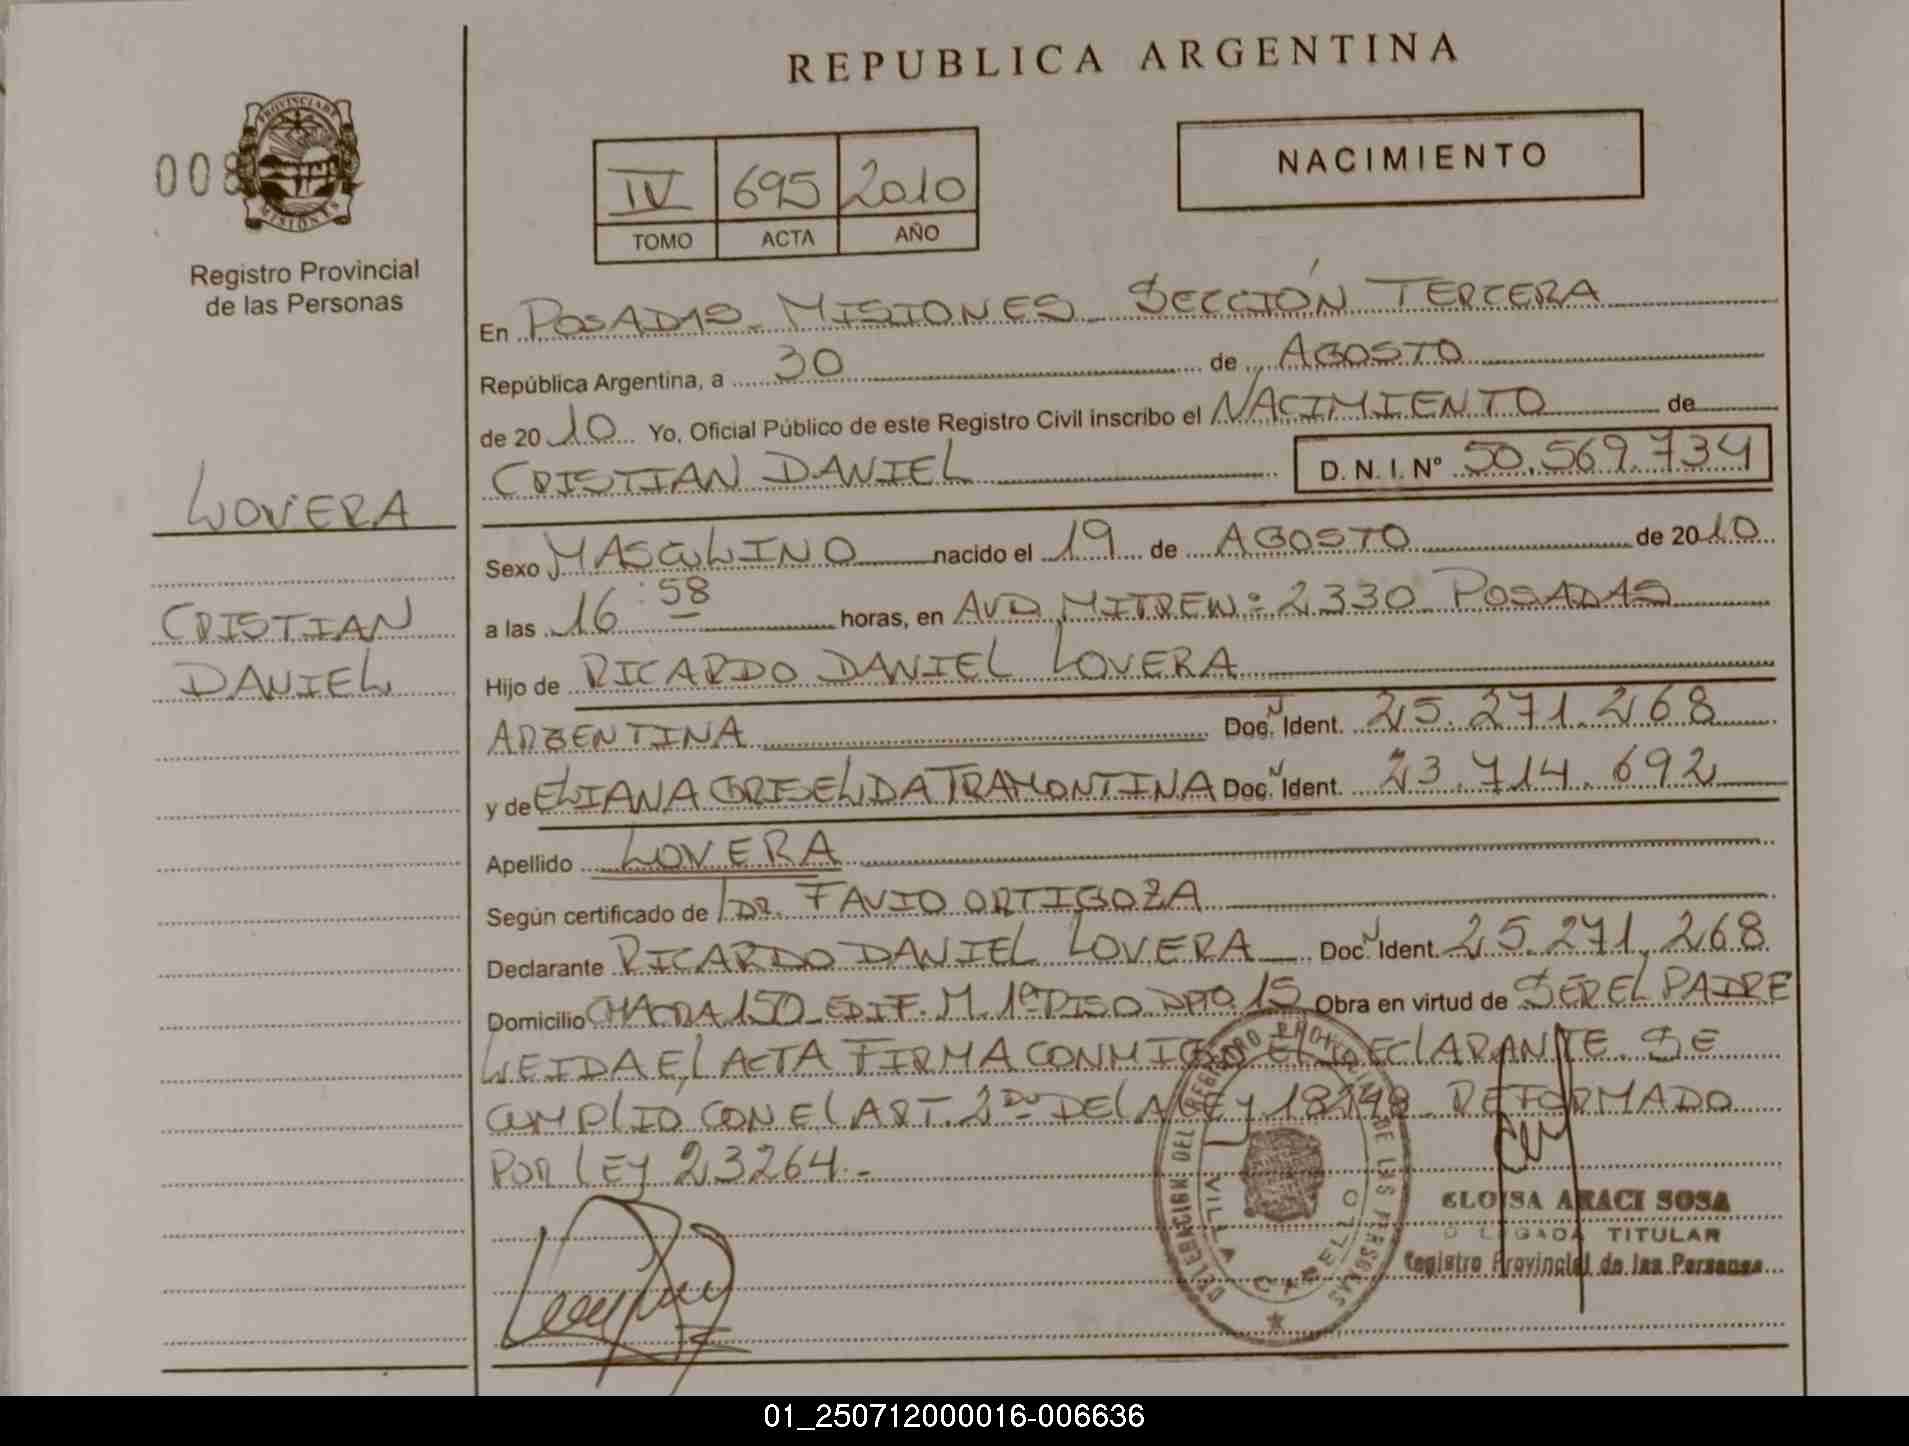 REPUBLICA ARGENTINA
008
PROVINCIA DE MISIONES
Registro Provincial
de las Personas
IV 695 2010
TOMO ACTA AÑO
NACIMIENTO
En POSADAS - MISIONES - SECCIÓN TERCERA
República Argentina, a 30 de AGOSTO
de 2010 Yo, Oficial Público de este Registro Civil inscribo el NACIMIENTO de
CRISTIAN DANIEL D.N.I. Nº 50.569.734
LOVERA
CRISTIAN
DANIEL
Sexo MASCULINO nacido el 19 de AGOSTO de 2010
a las 16:58 horas, en AVD. MITRE Nº 2330 POSADAS
Hijo de RICARDO DANIEL LOVERA
ARGENTINA Doc. N Ident. 25.271.268
y de ELIANA GRISELDA TRAMONTINA Doc. N Ident. 23.714.692
Apellido LOVERA
Según certificado de DR. FAVIO ORTIGOZA
Declarante RICARDO DANIEL LOVERA Doc. N Ident. 25.271.268
Domicilio CHACRA 150 - EDIF. M. 1º PISO DPTO. 15 Obra en virtud de SER EL PADRE
LEIDA EL ACTA FIRMA CONMIGO EL DECLARANTE. SE
CUMPLIO CON EL ART. 2DO DE LA LEY 18248 - REFORMADO
POR LEY 23264.-
DELEGACION DEL REGISTRO PROVINCIAL DE LAS PERSONAS
VILLA CABELLO
ELOISA ARACI SOSA
DELEGADA TITULAR
Registro Provincial de las Personas
01_250712000016-006636